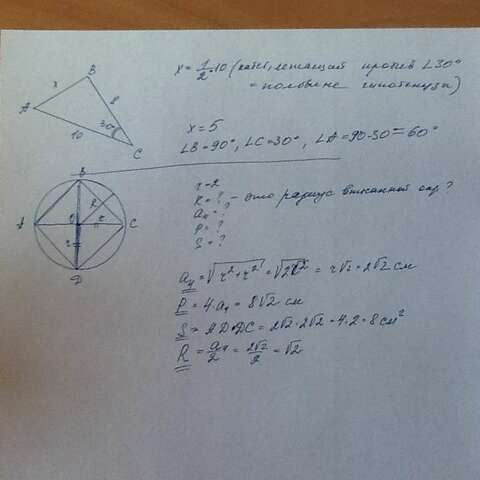 x = 1/2 · 10 (катет, лежащий против ∠30°
= половине гипотенузы)
B
x
8
A
30°
10
C
x = 5
∠B = 90°, ∠C = 30°, ∠A = 90 - 30 = 60°
B
R
A
O
r
C
r=2
D
r = 2
R = ? - это радиус вписанной окр?
a₄ = ?
P = ?
S = ?
a₄ = √r² + r² = √2r² = r√2 = 2√2 см
P = 4 · a₄ = 8√2 см
S = AD · DC = 2√2 · 2√2 = 4 · 2 = 8 см²
R = a₄/2 = 2√2/2 = √2